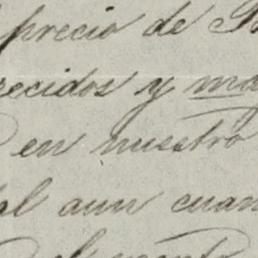 precio de
recidos y ma
en nuestro
al aun cuan